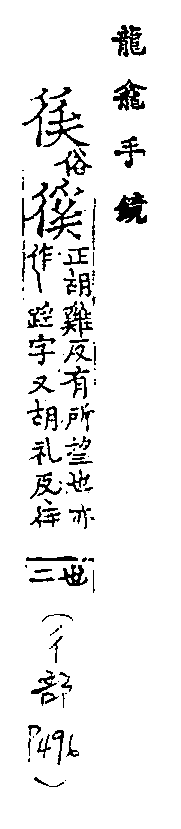 龍龕手鏡
俗
徯
正胡雞反有所望也亦
作蹊字又胡礼反待
也
二
(彳部
P496)